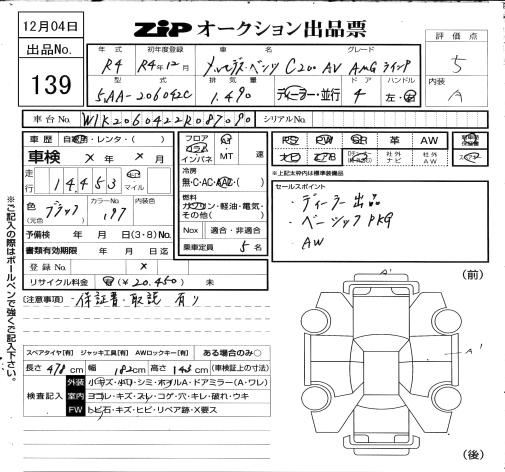 12月04日
ZiPオークション出品票
出品No.
139
評価点
5
内装
A
年式 初年度登録 車名 グレード
R4 R4年12月 メルセデス・ベンツ C200 AV AMGライン
型式 排気量 ドア ハンドル
5AA-206042C 1,490 ディーラー・並行 4 左・右
車台No. W1K2060422R087090 シリアルNo.
車歴 自家用・レンタ・( )
車検 × 年 × 月
走行 14,453 km マイル
色(元色) ブラック カラーNo. 197 内装色
予備検 年 月 日(3・8)No.
書類有効期限 年 月 日迄
登録No. ×
リサイクル料金 済(¥20,450) 未
フロア コラム インパネ AT MT 速
冷房
無・C・AC・AAC・( )
燃料
ガソリン・軽油・電気・その他( )
Nox 適合・非適合
乗車定員 5名
PS PW SR 革 AW
ナビ エアB 社外ナビ 社外AW
※上記太枠内は標準装備品
セールスポイント
・ディーラー出品
・ベーシックPKG
・AW
(注意事項) ・保証書・取説 有り
スペアタイヤ[有] ジャッキ工具[有] AWロックキー[有] ある場合のみ○
長さ478cm 幅182cm 高さ143cm (車検証上の寸法)
検査記入
外装 小キズ・小凹・シミ・ホイルA・ドアミラー(A・ワレ)
室内 ヨゴレ・キズ・スレ・コゲ・穴・キレ・破れ・ウキ
FW トビ石・キズ・ヒビ・リペア跡・X要ス
※ご記入の際はボールペンで強くご記入下さい。
(前)
A'
A'
(後)